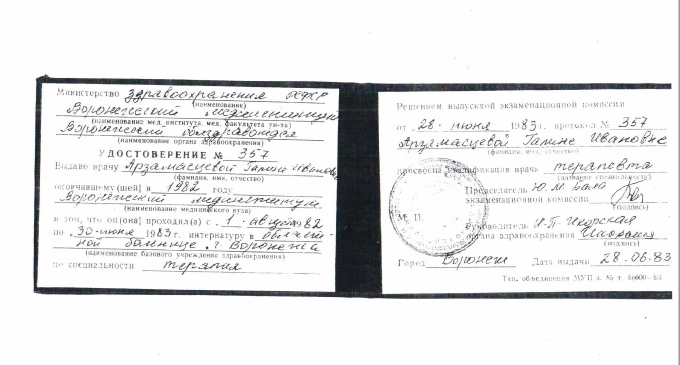 Министерство здравоохранения РСФСР
(наименование)
Воронежский мединститут
(наименование мед. института, мед. факультета ун-та)
Воронежский облздравотдел
(наименование органа здравоохранения)
УДОСТОВЕРЕНИЕ № 357
Выдано врачу Арзамасцевой Галине Ивановне
(фамилия, имя, отчество)
окончившему(шей) в 1982 году
Воронежский мединститут
(наименование медицинского вуза)
в том, что он(она) проходил(а) с 1 августа 1982
по 30 июня 1983 г. интернатуру в
ной больнице г. Воронежа
(наименование базового учреждения здравоохранения)
по специальности терапия
Решением выпускной экзаменационной комиссии
от 28 июня 1983 г. протокол № 357
Арзамасцевой Галине Ивановне
(фамилия, имя, отчество)
присвоена квалификация врача терапевта
(название специальности)
Председатель
экзаменационной комиссии
(подпись)
М. П.
Руководитель
органа здравоохранения
(подпись)
Город Воронеж Дата выдачи 28.06.83
Тип. объединения